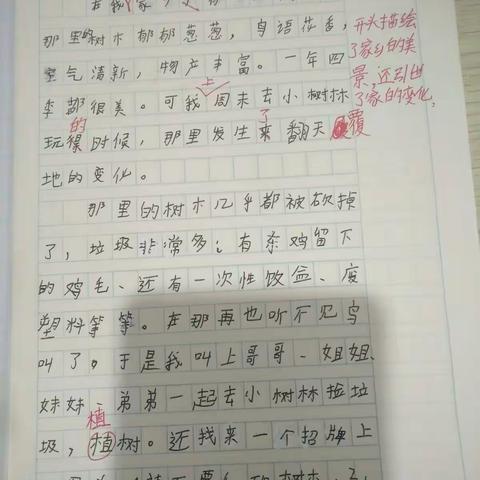 在我家
那里的树木郁郁葱葱，鸟语花香，
空气清新，物产丰富。一年四
季都很美。可我上周末去小树林
玩得的时候，那里发生来了翻天覆
地的变化。
那里的树木几乎都被砍掉
了，垃圾非常多；有杀鸡留下
的鸡毛、还有一次性饭盒、废
塑料等等。在那再也听不见鸟
叫了。于是我叫上哥哥、姐姐、
妹妹、弟弟一起去小树林捡垃
圾，植树。还找来一个招牌上
植
开头描绘
了家乡的美
景，还引出
了家的变化，